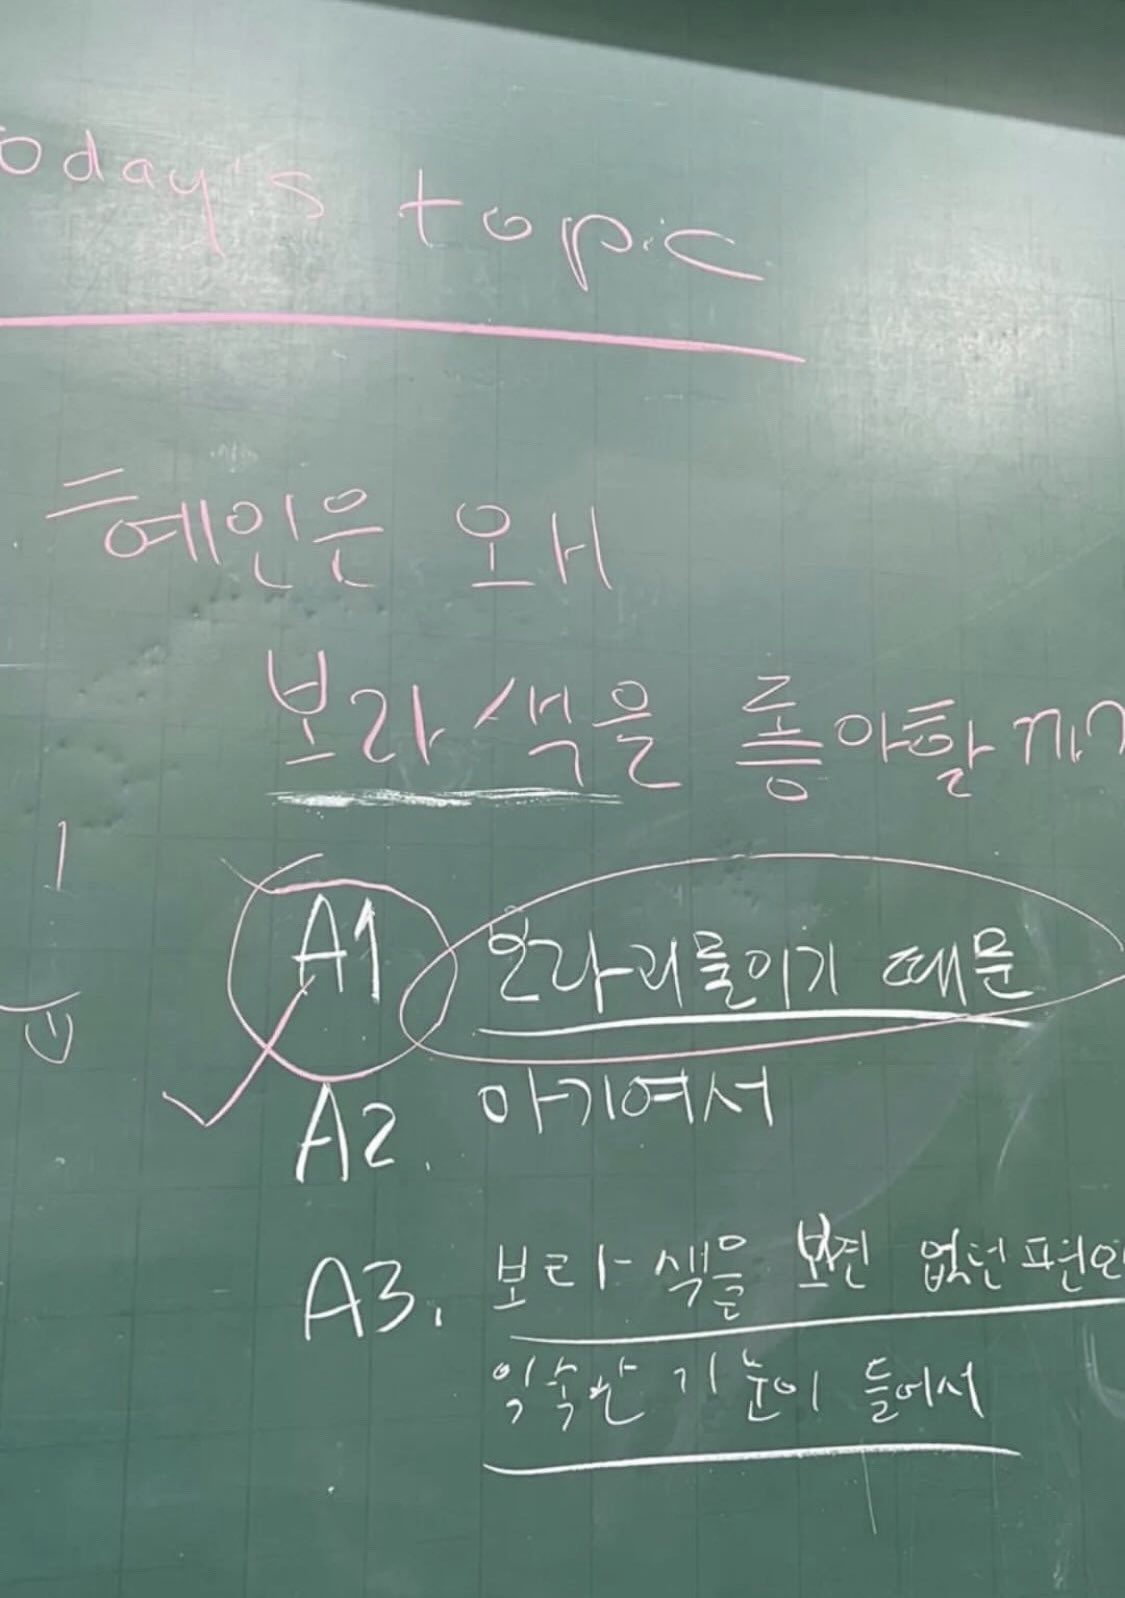 oday's topic
혜인은 왜
보라색을 좋아할까?
A1 온라퀴들이기 때문
A2. 아기여서
A3. 보라색을 보면 없던 편안
익숙한 기분이 들어서